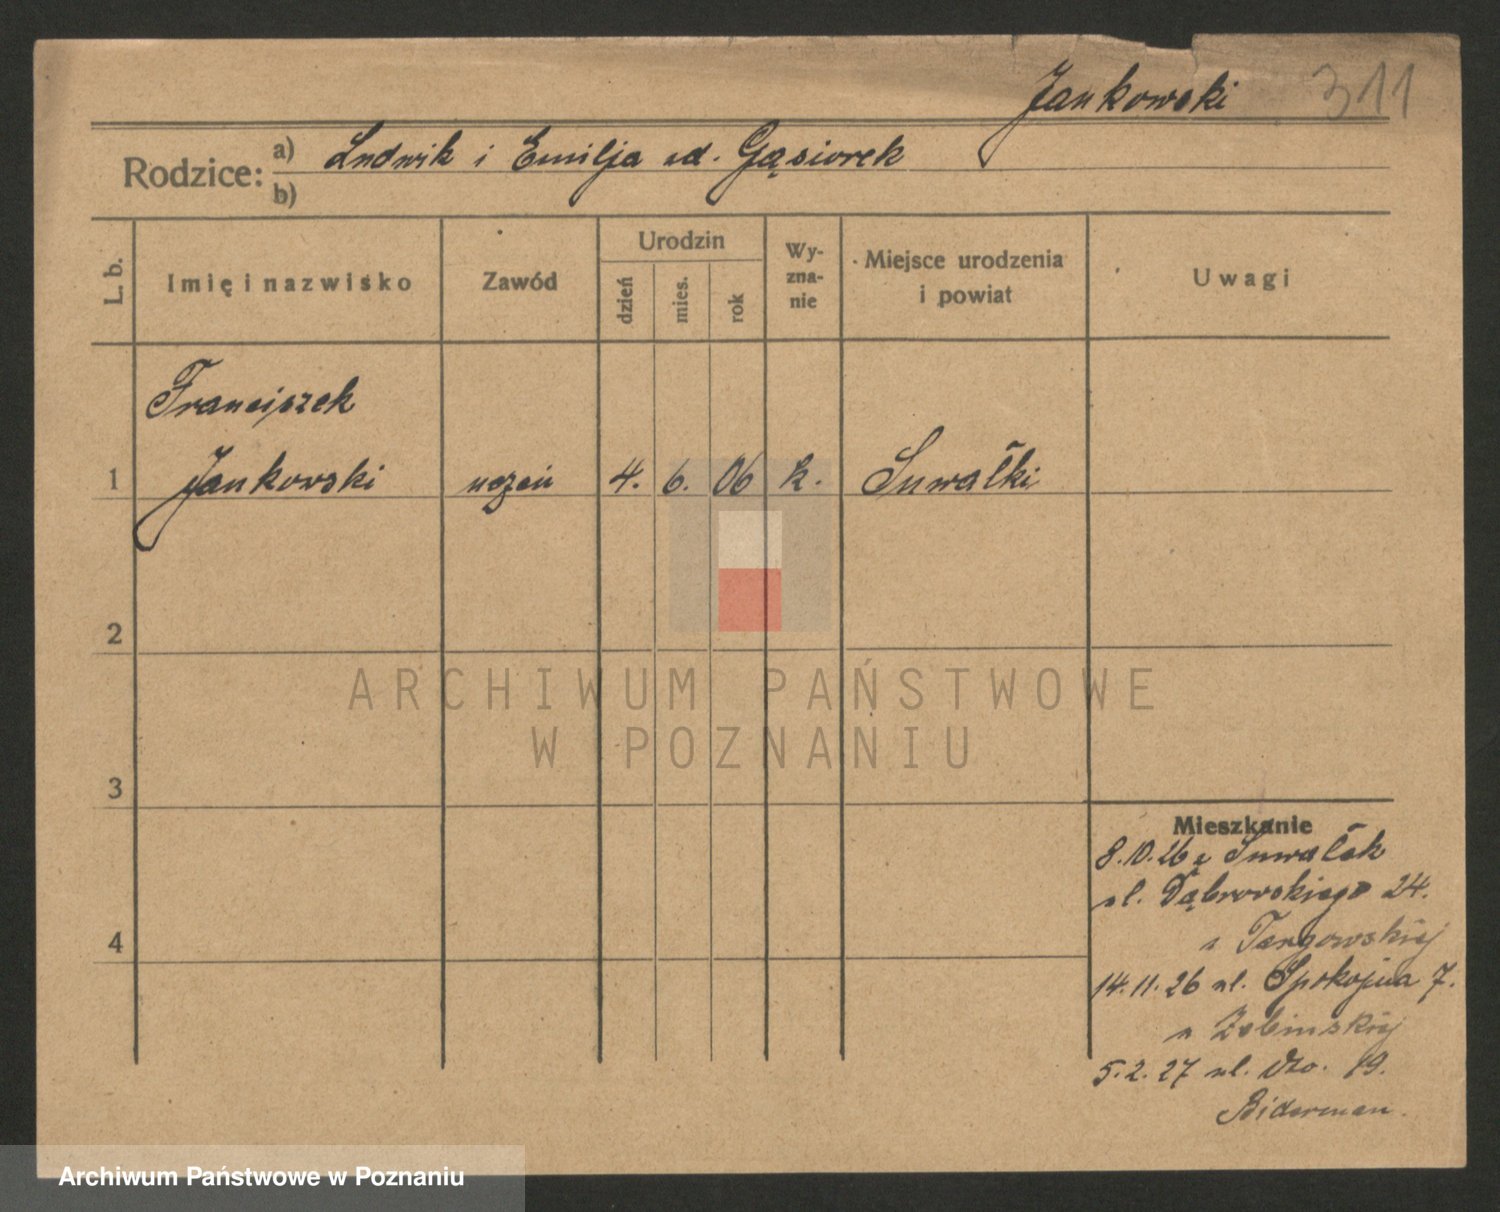 Jankowski 311
Rodzice: a) Ludwik i Emilja ud. Gąsiorek
b)
L. b. Imię i nazwisko Zawód Urodzin dzień mies. rok Wy-zna-nie Miejsce urodzenia i powiat Uwagi
Franciszek
1 Jankowski uczeń 4. 6. 06 k. Suwałki
2
ARCHIWUM PAŃSTWOWE
W POZNANIU
3
Mieszkanie
8.10.26 z Suwałk
ul. Dąbrowskiego 24.
u Targowskiej
4
14.11.26 ul. Spokojna 7.
u
5.2.27 ul. 19.
Biderman.
Archiwum Państwowe w Poznaniu